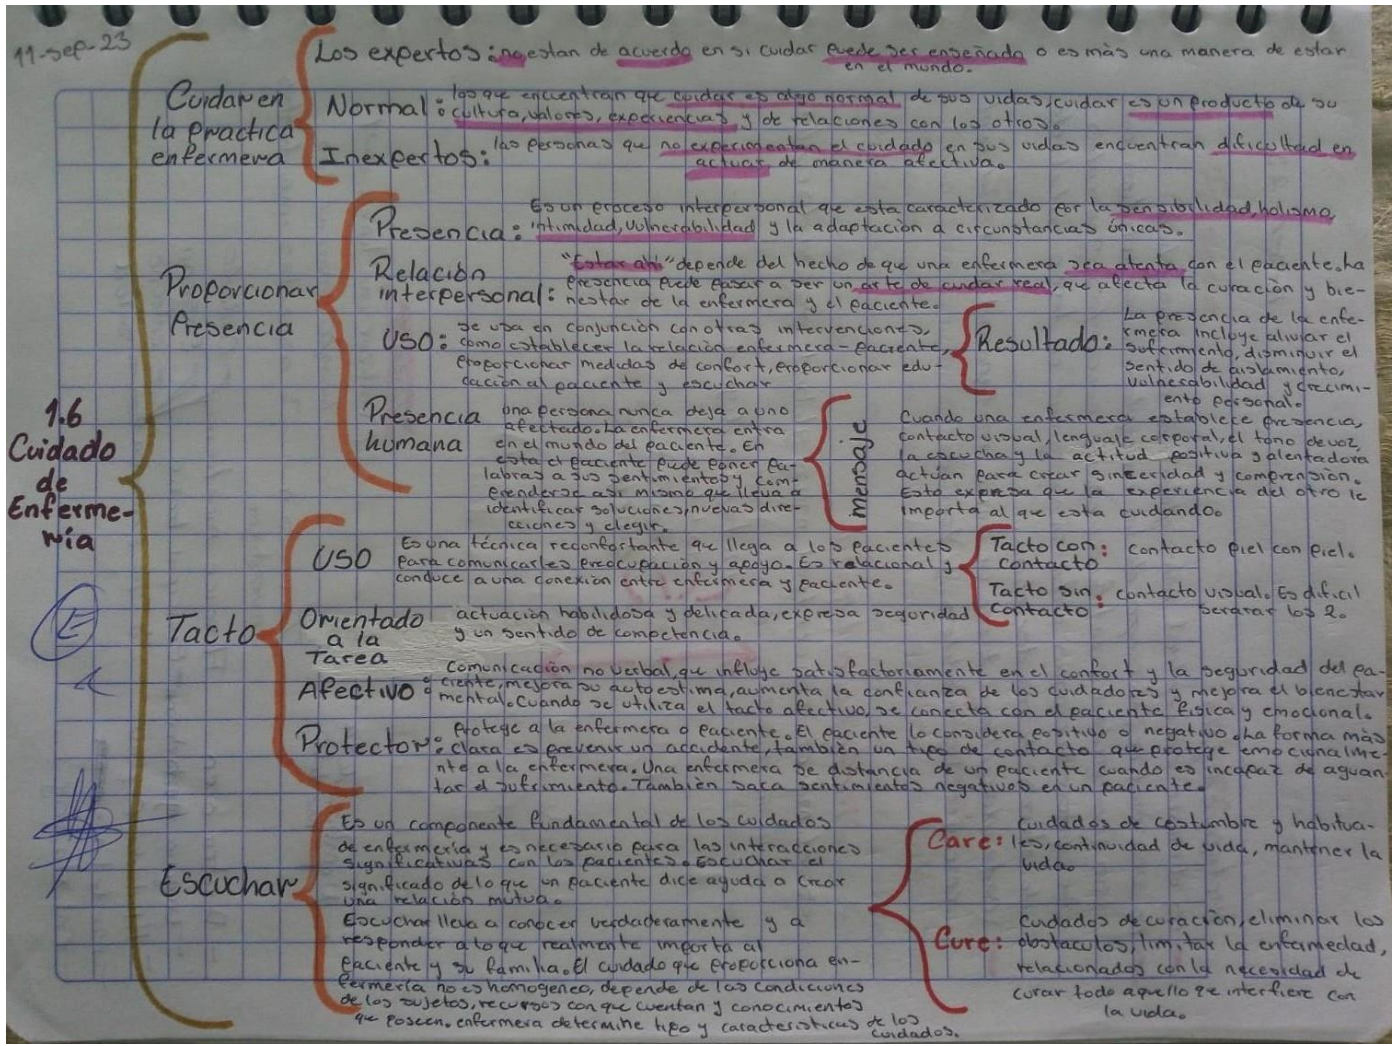 11-sep-23
1.6
Cuidado
de
Enferme-
ría
Cuidar en
la practica
enfermera
Los expertos: no estan de acuerdo en si cuidar puede ser enseñado o es más una manera de estar
en el mundo.
Normal: los que encuentran que cuidar es algo normal de sus vidas, cuidar es un producto de su
cultura, valores, experiencias y de relaciones con los otros.
Inexpertos: las personas que no experimentan el cuidado en sus vidas encuentran dificultad en
actuar de manera afectiva.
Proporcionar
Presencia
Presencia: Es un proceso interpersonal que esta caracterizado por la sensibilidad, holismo,
intimidad, vulnerabilidad y la adaptación a circunstancias únicas.
Relación
interpersonal:
"Estar ahi" depende del hecho de que una enfermera sea atenta con el paciente. La
presencia puede pasar a ser un arte de cuidar real, que afecta la curación y bie-
nestar de la enfermera y el paciente.
USO: se usa en conjunción con otras intervenciones,
como establecer la relación enfermera-paciente,
proporcionar medidas de confort, proporcionar edu-
cación al paciente y escuchar
Resultado:
La presencia de la enfe-
rmera incluye aliviar el
sufrimiento, disminuir el
sentido de aislamiento,
vulnerabilidad y crecimi-
ento personal.
Presencia
humana
una persona nunca deja a uno
afectado. La enfermera entra
en el mundo del paciente. En
esta el paciente puede poner pa-
labras a sus sentimientos y com-
prenderse asi mismo que lleva a
identificar soluciones, nuevas dire-
cciones y elegir.
mensaje
Cuando una enfermera establece presencia,
contacto visual, lenguaje corporal, el tono de voz,
la escucha y la actitud positiva y alentadora
actúan para crear sinceridad y comprensión.
Esto expresa que la experiencia del otro le
importa al que esta cuidando.
Tacto
USO
Es una técnica reconfortante que llega a los pacientes
para comunicarles preocupación y apoyo. Es relacional y
conduce a una conexión entre enfermera y paciente.
Tacto con: contacto piel con piel.
contacto
Tacto sin: contacto visual. Es dificil
contacto separar los 2.
Orientado
a la
Tarea
actuación habilidosa y delicada, expresa seguridad
y un sentido de competencia.
Afectivo:
Comunicación no verbal, que influye satisfactoriamente en el confort y la seguridad del pa-
ciente, mejora su autoestima, aumenta la confianza de los cuidadores y mejora el bienestar
mental. Cuando se utiliza el tacto afectivo, se conecta con el paciente física y emocional.
Protector:
Protege a la enfermera o paciente. El paciente lo considera positivo o negativo. La forma más
clara es prevenir un accidente, también un tipo de contacto que protege emocionalme-
nte a la enfermera. Una enfermera se distancia de un paciente cuando es incapaz de aguan
tar el sufrimiento. También saca sentimientos negativos en un paciente.
Escuchar
Es un componente fundamental de los cuidados
de enfermería y es necesario para las interacciones
significativas con los pacientes. Escuchar el
significado de lo que un paciente dice ayuda a crear
una relación mutua.
Escuchar lleva a conocer verdaderamente y a
responder a lo que realmente importa al
paciente y su familia. El cuidado que proporciona en-
fermería no es homogeneo, depende de las condiciones
de los sujetos, recursos con que cuentan y conocimientos
que poseen. enfermera determine tipo y caracteristicas de los
cuidados.
Care:
Cuidados de costumbre y habitua-
les, continuidad de vida, mantener la
vida.
Cure:
Cuidados de curación, eliminar los
obstaculos, limitar la enfermedad,
relacionados con la necesidad de
curar todo aquello qe interfiere con
la vida.